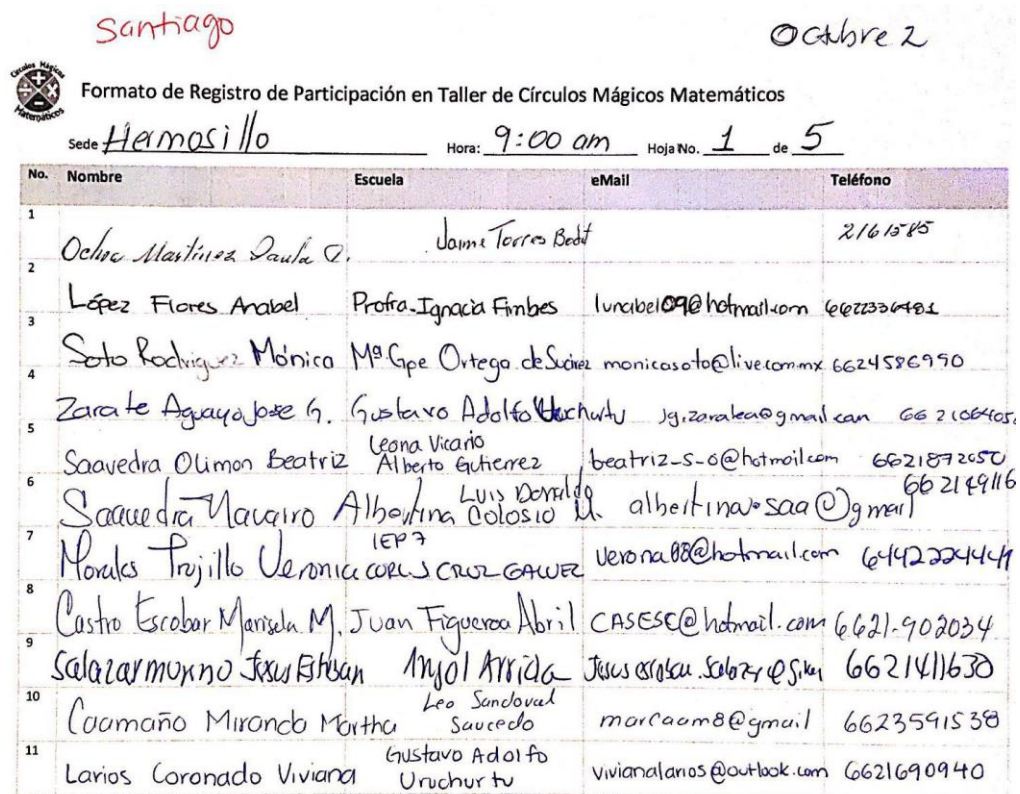 Santiago
Octubre 2
Círculos Mágicos
Matemáticos
Formato de Registro de Participación en Taller de Círculos Mágicos Matemáticos
Sede Hermosillo Hora: 9:00 am Hoja No. 1 de 5
No. Nombre Escuela eMail Teléfono
1 Ochoa Martínez Paula O. Jaime Torres Bodet 2161585
2 López Flores Anabel Profra. Ignacia Fimbes lunabel09@hotmail.com 6622336481
3 Soto Rodriguez Mónica Mª Gpe Ortega de Suárez monicasoto@live.com.mx 6624586990
4 Zarate Aguayo Jose G. Gustavo Adolfo Uruchurtu jg.zaratea@gmail.com
5 Saavedra Olimon Beatriz Leona Vicario
Alberto Gutierrez beatriz-s-o@hotmail.com 6621872050
6 Saavedra Navarro Albertina Luis Donaldo
Colosio M. albertina.saa@gmail 662149116
7 Morales Trujillo Veronica IEP 7
CRUZ GALVEZ verona08@hotmail.com 6442224449
8 Castro Escobar Marisela M. Juan Figueroa Abril CASESC@hotmail.com 6621-902034
9 Salazar Jesus Esteban 6621411630
10 Caamaño Miranda Martha Leo Sandoval
Saucedo marcaam8@gmail 6623591538
11 Larios Coronado Viviana Gustavo Adolfo
Uruchurtu vivianalarios@outlook.com 6621690940